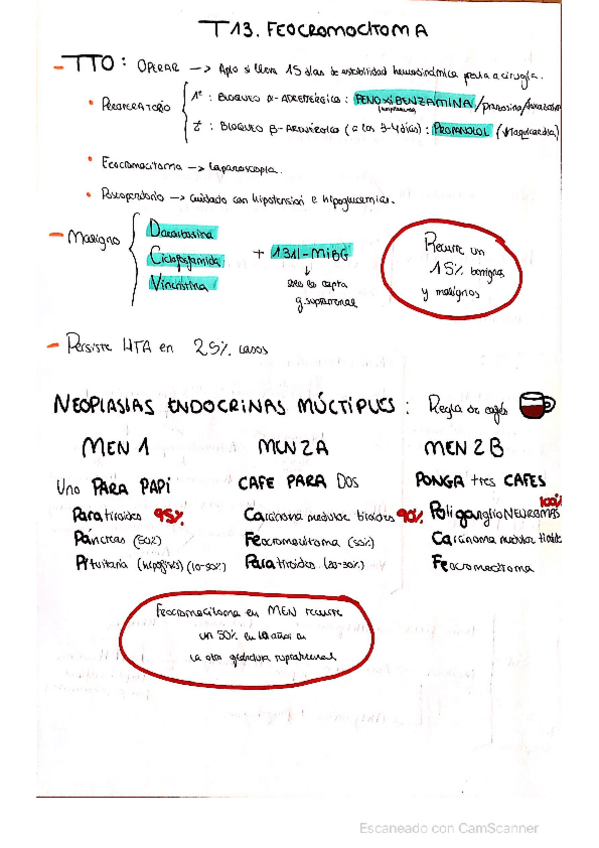 T13. FEOCROMOCITOMA
- TTO: OPERAR -> Apto si lleva 15 días de estabilidad hemodinámica previa a cirugía.
• PREOPERATORIO { 1º: BLOQUEO α-ADRENÉRGICO: FENOXIBENZAMINA /prazosina/
2º: BLOQUEO β-ADRENÉRGICO (a los 3-4 días): PROPANOLOL (↓taquicardia)
• Feocromocitoma -> Laparoscopia.
• Posoperatorio -> cuidado con hipotensión e hipoglucemias.
- Maligno { Dacarbazina
Ciclofosfamida + 131I-MIBG
Vincristina
↓
la capta
g.suprarrenal
Recurre un
15% benignos
y malignos
- Persiste HTA en 25% casos
NEOPLASIAS ENDOCRINAS MÚLTIPLES: Regla de cafés
MEN 1 MEN 2A MEN 2B
Uno PARA PAPI CAFE PARA DOS PONGA tres CAFES
Paratiroides 95% Carcinoma medular tiroides 90% PoligangliONEUROMAS 100%
Páncreas (50%) Feocromocitoma (50%) Carcinoma medular
Pituitaria (hipófisis) Paratiroides (20-30%) Feocromocitoma
Feocromocitoma en MEN recurre
un 50% en 10 años en
la otra glándula suprarrenal
Escaneado con CamScanner